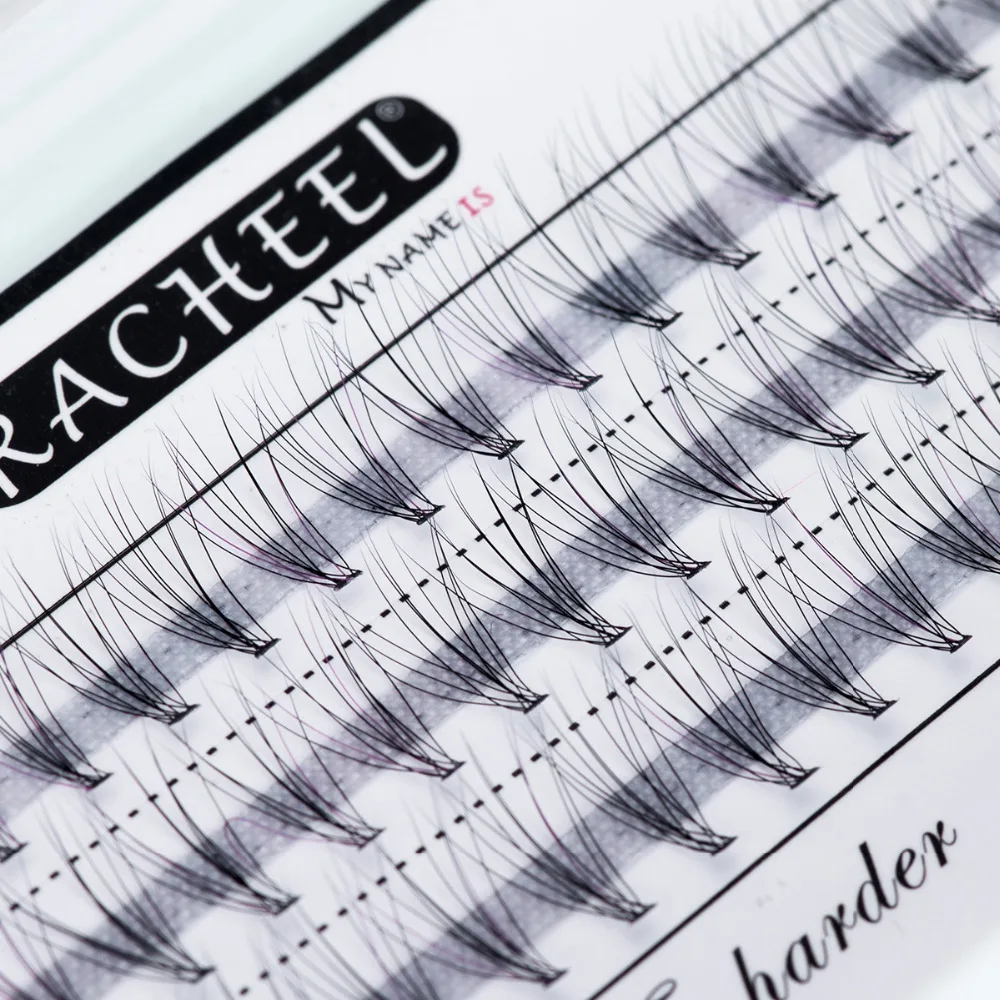 RACHEEL®
MY NAME IS
harder